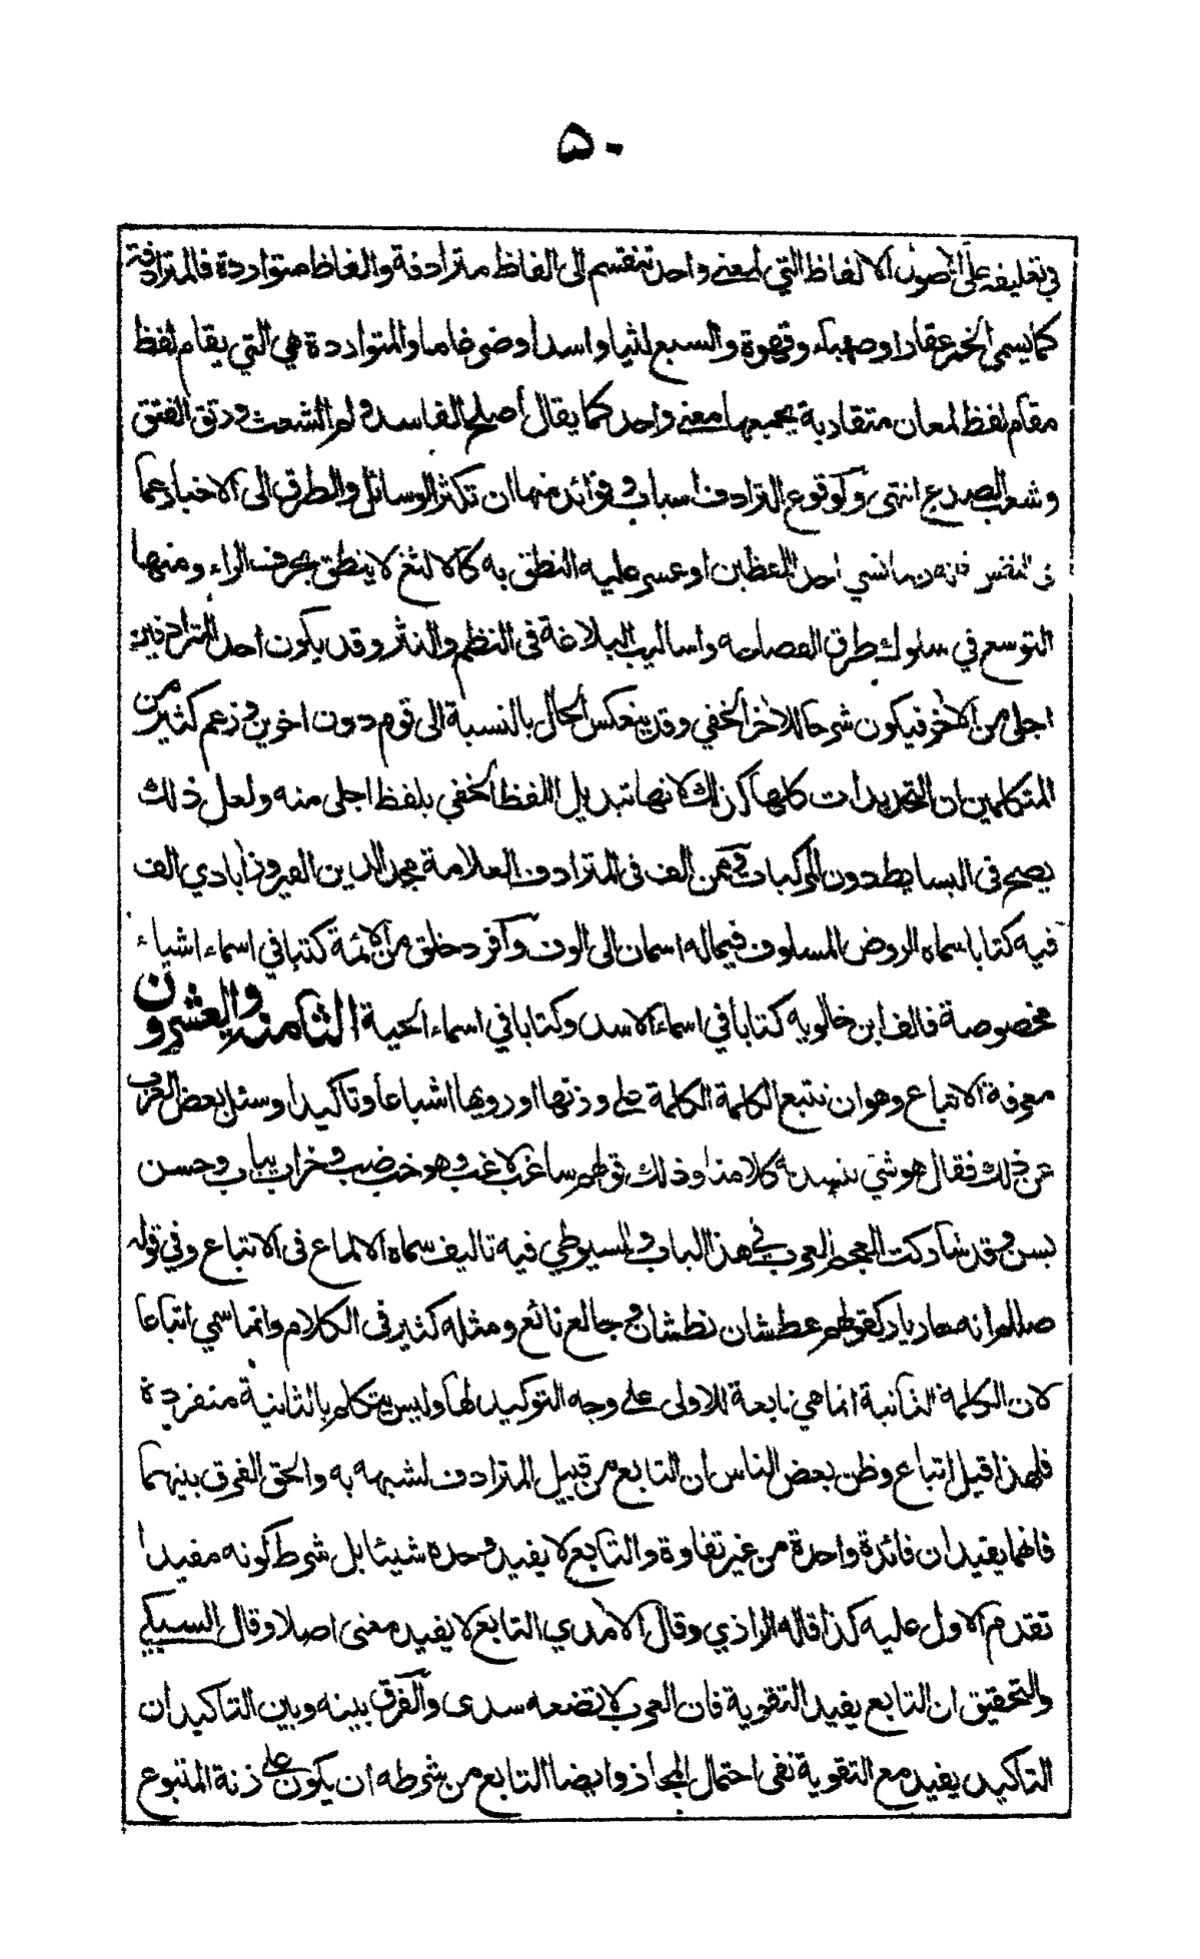 ٥٠
في تعليقه على الاصول الالفاظ التي لمعنى واحد تنقسم الى الفاظ مترادفة والفاظ متواردة فالمترادفة
كما يسمى الخمر عقارا وصهباء وقهوة والسبع ليثا واسدا وضرغاما والمتواردة هي التي يقام لفظ
مقام لفظ لمعان متقاربة يجمعها معنى واحد كما يقال أصلح الفاسد ولم الشعث ورتق الفتق
وشعب الصدع انتهى ولوقوع الترادف اسباب وفوائد منها ان تكثر الوسائل والطرق الى الاخبار عما
في النفس فانه ربما نسي احد اللفظين او عسر عليه النطق به كالالثغ لا ينطق بحرف الراء ومنها
التوسع في سلوك طرق الفصاحه واساليب البلاغة في النظم والنثر وقد يكون احد المترادفين
اجلى من الاخر فيكون شرحا للاخر الخفي وقد ينعكس الحال بالنسبة الى قوم دون اخرين وزعم كثير من
المتكلمين ان التحديدات كلها كذلك لانها تبديل اللفظ الخفي بلفظ اجلى منه ولعل ذلك
يصح في البسايط دون المركبات وممن الف في المترادف العلامة مجد الدين الفيروزآبادي الف
فيه كتابا سماه الروض المسلوف فيما له اسمان الى الوف وأفرد خلق من الائمة كتبا في اسماء اشياء
مخصوصة فالف ابن خالويه كتابا في اسماء الاسد وكتابا في اسماء الحية الثامنه والعشرون
معرفة الاتباع وهو ان تتبع الكلمة الكلمة على وزنها او رويها اشباعا وتاكيدا وسئل بعض العرب
عن ذلك فقال هو شيء نتد به كلامنا وذلك قولهم ساغب لاغب وهو خب ضب وخراب يباب وحسن
بسن وقد شاركت العجم العرب في هذا الباب وللسيوطي فيه تاليف سماه الالماع في الاتباع وفي قوله
صللم انه حار يار كقولهم عطشان نطشان وجائع نائع ومثله كثير في الكلام وانما سمي اتباعا
لان الكلمة الثانية انما هي تابعة للاولى على وجه التوكيد لها وليس يتكلم بالثانية منفردة
فلهذا قيل اتباع وظن بعض الناس ان التابع من قبيل المترادف لشبهه به والحق الفرق بينهما
فانهما يفيدان فائدة واحدة من غير تفاوة والتابع لا يفيد وحده شيئا بل شرط كونه مفيدا
تقدم الاول عليه كذا قاله الرازي وقال الآمدي التابع لا يفيد معنى اصلا وقال السبكي
والتحقيق ان التابع يفيد التقوية فان العرب لا تضعه سدى والفرق بينه وبين التاكيد ان
التاكيد يفيد مع التقوية نفي احتمال المجاز وايضا التابع من شرطه ان يكون على زنة المتبوع